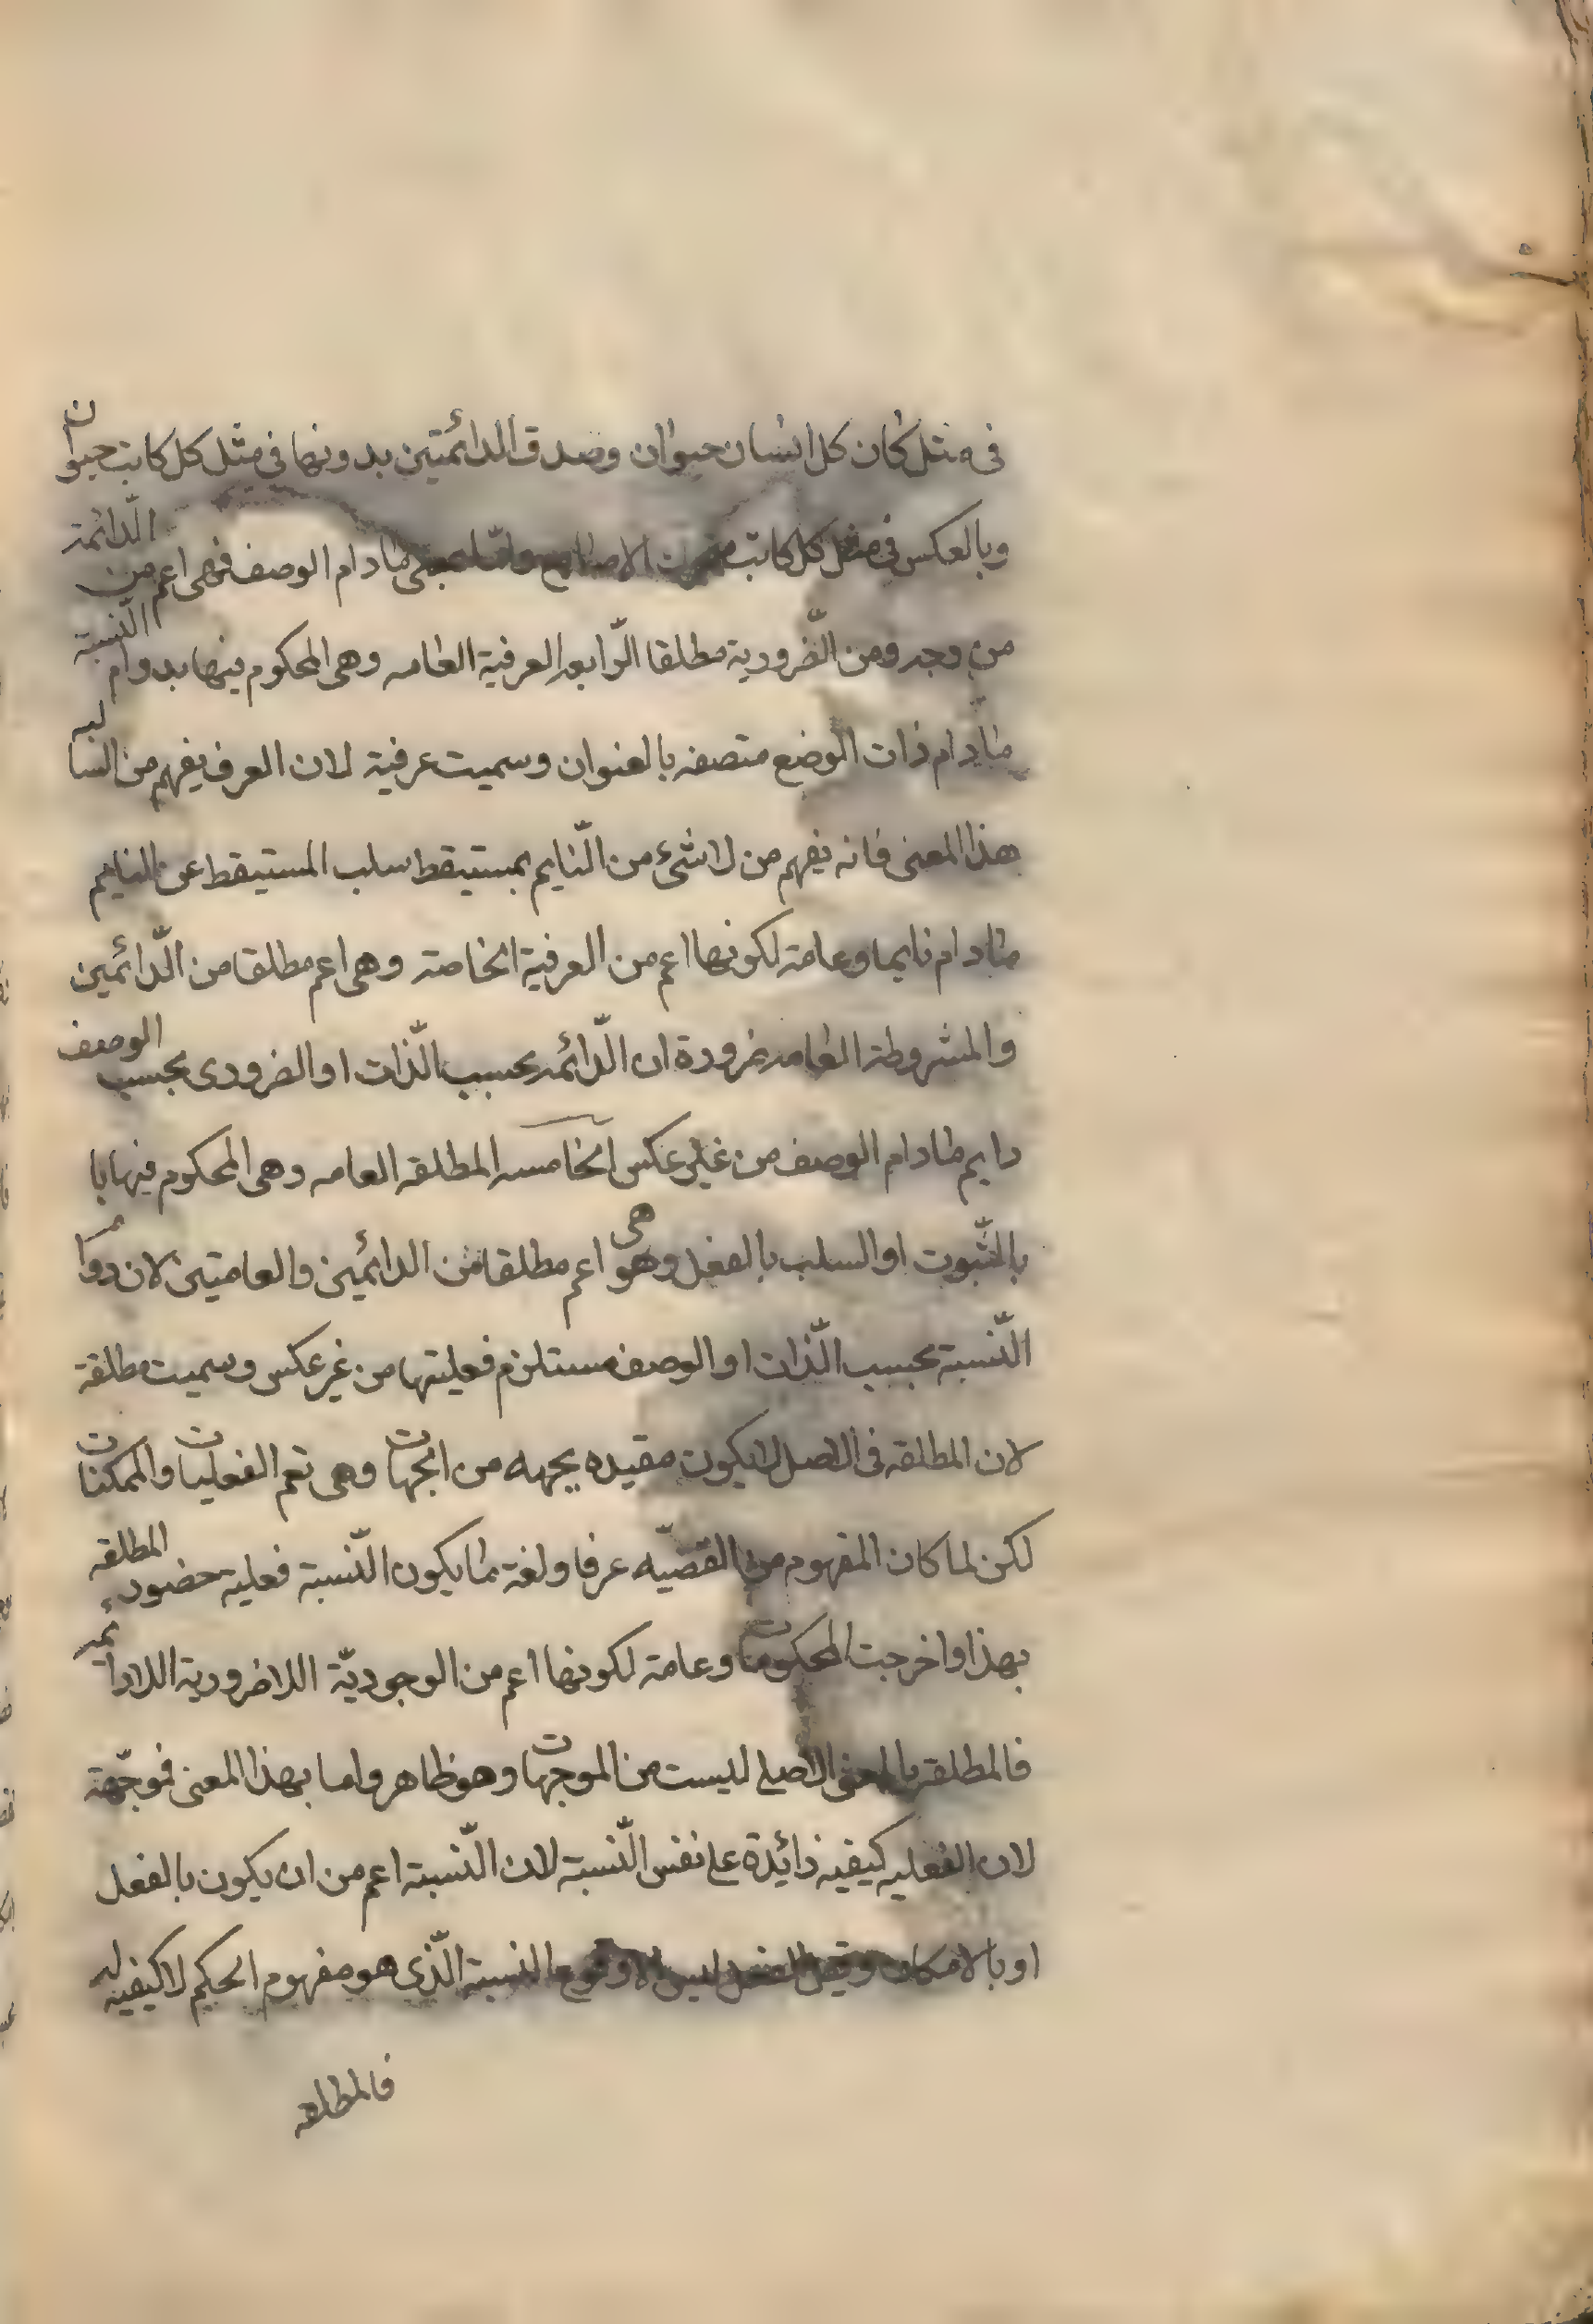 في مثل كان كل انسان حيوان وصدق الدائمتين بدونها في مثل كل كاتب حيوان
وبالعكس في مثل كل كاتب الاصابع مادام الوصف فهى اعم من الدائمة
من وجه ومن الضرورية مطلقا الرابعه العرفية العامه وهى المحكوم فيها بدوام النسبة
مادام ذات الوضع متصفه بالعنوان وسميت عرفية لان العرف يفهم من السالبه
هذا المعنى فانه يفهم من لا شئ من النايم بمستيقط سلب المستيقط عن النايم
مادام نايما وعامة لكونها اعم من العرفية الخاصة وهى اعم مطلقا من الدائمين
والمشروطة العامه ضرورة ان الدائمه بحسب الذات او الضرورى بحسب الوصف
دايم مادام الوصف من غير عكس الخامسه المطلقه العامه وهى المحكوم فيها با
بالثبوت او السلب بالفعل وهو هى اعم مطلقا من الدائمين والعامتين لان دوام
النسبة بحسب الذات او الوصف مستلزم فعليتها من غير عكس وسميت مطلقة
لان المطلقه في الاصل لايكون مقيده بجهه من الجهات وهى تعم الفعليات والممكنات
لكن لما كان المفهوم من القضيه عرفا ولغة ما يكون النسبة فعليه المطلقه
بهذا واخرجت وعامة لكونها اعم من الوجودية اللاضرورية اللادائمه
فالمطلقه بالمعنى الاصلي ليست من الموجهات وهو ظاهر واما بهذا المعنى فموجهة
لان الفعليه كيفيه زائدة على نفس النسبة لان النسبة اعم من ان يكون بالفعل
او بالامكان وقيل الفعل ليس الا وقوع النسبة الذى هو مفهوم الحكم لا كيفيه له
فالمطلقه